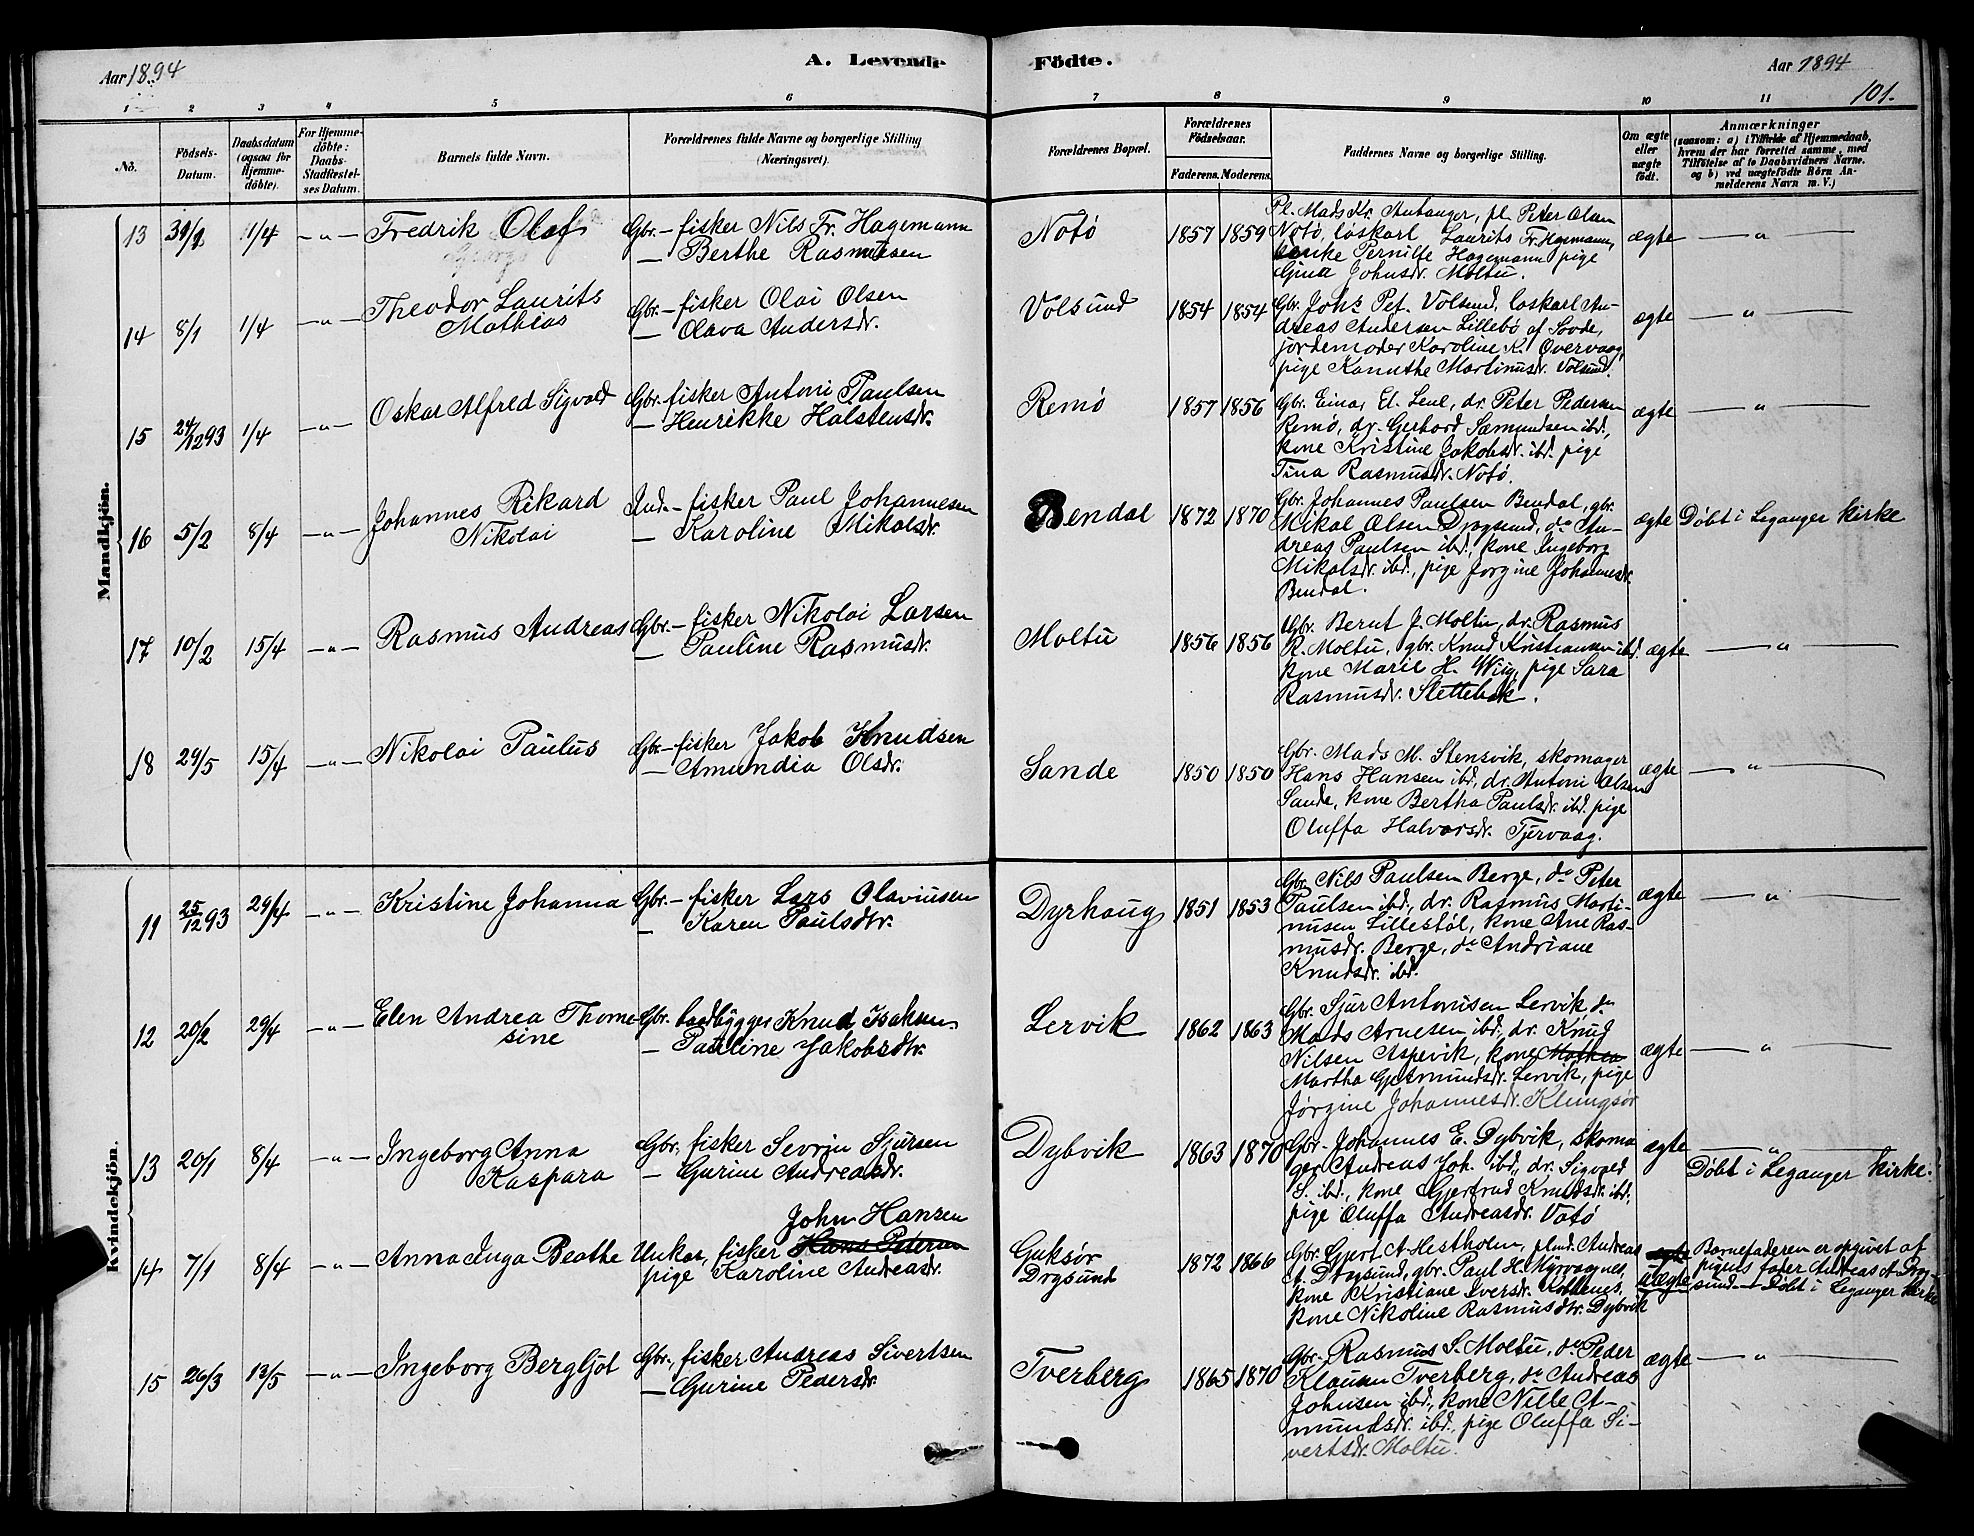 Aar 1894
A. Levende Födte.
Aar 1894
101.
1 2 3 4 5 6 7 8 9 10 11
No.
Födsels-Datum.
Daabsdatum (ogsaa for Hjemme-döbte).
For Hjemme-döbte: Daabs-Stadfæstel-ses Datum.
Barnets fulde Navn.
Forældrenes fulde Navne og borgerlige Stilling (Næringsvei).
Forældrenes Bopæl.
Forældrenes Födselsaar.
Faderens. Moderens.
Faddernes Navne og borgerlige Stilling.
Om ægte eller uægte födt.
Anmærkninger
(saasom: a) i Tilfælde af Hjemmedaab, hvem der har forrettet samme, med Tilföielse af to Daabsvidners Navne. og b) ved uægtefödte Börn Anmelderens Navn m. V.)
Mandkjön.
13 1/4 -"- Fredrik Olaf Gbr.- fisker Nils Fr. Hagemann
— Berthe Rasmusen
Notø 1857 1859
Pl. Mads Kr. pl. Peter Olsen
Notø, løskarl Laurits Fr. Hagemann,
Pernille Hagemann pige
Gina Johnsdr. Moltu.
ægte — " —
14 8/1 1/4 -"- Theodor Laurits
Mathias
Gbr.- fisker Olai Olsen
— Olava Andersdr.
Volsund 1854 1854
Gbr. Johs. Pet. Volsund, løskarl An-
dreas Andersen Lillebø af Søvde,
jordemoder Karoline K. Overvaag,
pige Kanuthe Martinusdr. Volsund.
ægte — " —
15 24/12 93 1/4 -"- Oskar Alfred Sigvald
Gbr.- fisker Antoni Paulsen
— Henrikke Halstensdr.
Remø 1857 1856
Gbr. Einar El. dr. Peter Pedersen
Remø, dr. Gerhard Sæmundsen ibd.,
kone Kristine Jakobsdr. ibd. pige
Tina Rasmusdr. Notø.
ægte — " —
16 5/2 8/4 -"- Johannes Rikard
Nikolai
Ind.- fisker Paul Johannesen
— Karoline Mikalsdr.
Bendal 1872 1870
Gbr. Johannes Paulsen Bendal, gbr.
Mikal Olsen Drogsund, do An-
dreas Paulsen ibd., kone Ingeborg
Mikalsdr. ibd., pige Jorgine Johannesdr.
Bendal.
ægte Døbt i Leganger kirke
17 10/2 15/4 -"- Rasmus Andreas
Gbr.- fisker Nikolai Larsen
— Pauline Rasmusdr.
Moltu 1856 1856
Gbr. Bernt J. Moltu, dr. Rasmus
R. Moltu, gbr. Knud Kristiansen ibd.
kone Marie H. Wiig, pige Sara
Rasmusdr. Slettebak.
ægte — " —
18 29/5 15/4 -"- Nikolai Paulus
Gbr.- fisker Jakob Knudsen
— Amundia Olsdr.
Sande 1850 1850
Gbr. Mads M. Stensvik, skomager
Hans Hansen ibd., dr. Antoni Olsen
Sande, kone Bertha Paulsdr. ibd. pige
Oluffa Halvorsdr. Tjervaag.
ægte — " —
Kvindekjön.
11 25/12 93 29/4 -"- Kristine Johanna
Gbr.- fisker Lars Olaviusen
— Karen Paulsdtr.
Dyrhaug 1851 1853
Gbr. Nils Paulsen Berge, do Peter
Paulsen ibd., dr. Rasmus Marti-
nusen Lillestøl, kone Ane Ras-
musdr. Berge, do Andriane
Knudsdr. ibd.
ægte — " —
12 20/2 29/4 -"- Elen Andrea Thome-
sine
Gbr. baadbygger Knud Isaksen
— Pauline Jakobsdtr.
Lervik 1862 1863
Gbr. Sjur Antonisen Lervik do
Mads Arnesen ibd., dr. Knud
Nilsen Aspevik, kone Mathea
Martha Gjetmundsdr. Lervik, pige
Jørgine Johannesdr. Klungsør
ægte — " —
13 20/1 8/4 -"- Ingeborg Anna
Kaspara
Gbr., fisker Sevrin Sjursen
— Gurine Andreasdr.
Dybvik 1863 1870
Gbr. Johannes E. Dybvik, skoma
ger Andreas Joh. ibd., dr. Sigvald
S. ibd., kone Gjertrud Knudsdr. ibd.
pige Oluffa Andreasdr. Votø
ægte — " —
Døbt i Leganger kirke.
14 7/1 8/4 -"- Anna Inga Beathe
John Hansen
Unkar, fisker Hans Petersen
pige Karoline Andreasdr.
Guksør
Drgsund
1872 1866
Gbr. Gjert A. Hestholm, Andreas
A. Drogsund, gbr. Paul H. Myrvagnes,
kone Kristiane Iversdr. Koldenes,
kone Nikoline Rasmusdtr. Dybvik
ægte
uægte
Barnefaderen er opgivet af
pigens fader Andreas A. Drg-
sund — Døbt i Leganger kirke
15 26/3 13/5 -"- Ingeborg Bergljot
Gbr., fisker Andreas Sivertsen
— Gurine Pedersdr.
Tverberg 1865 1870
Gbr. Rasmus S. Moltu, do Peder
Klausen Tverberg, do Andreas
Johnsen ibd., kone Nille A-
mundsdr. ibd., pige Oluffa Si-
vertsdr. Moltu.
ægte — " —